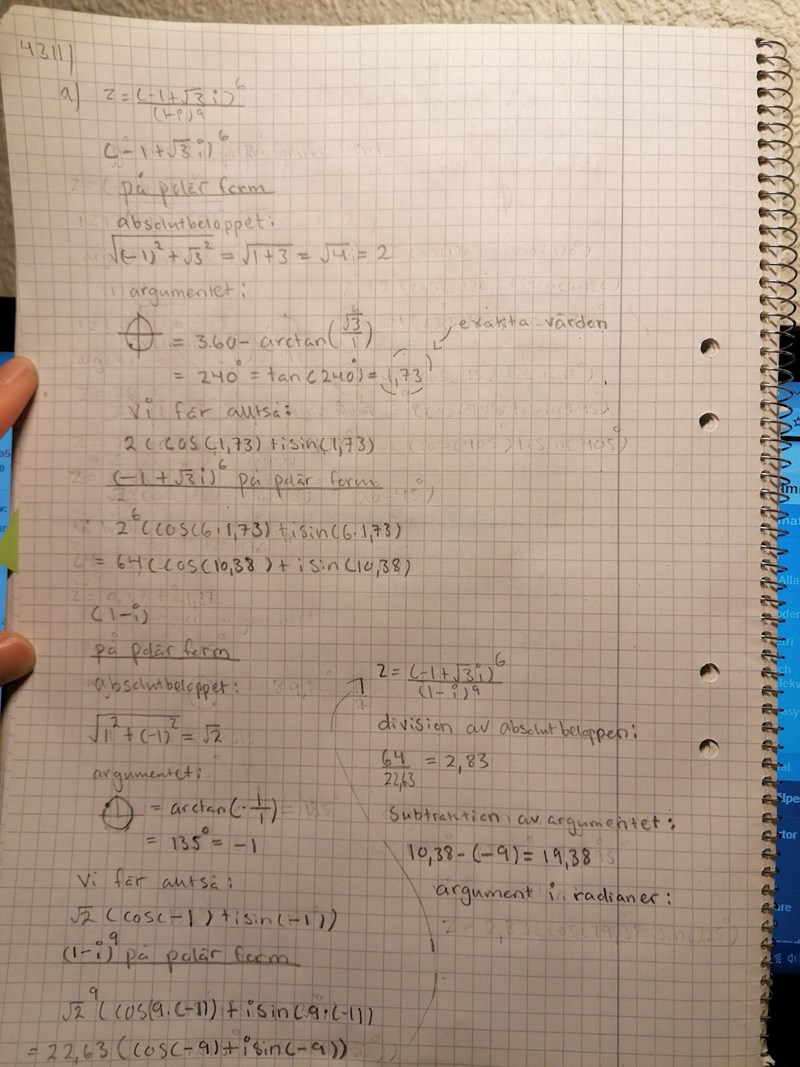 4311)
a) z = (-1+√3 i)^6 / (1-i)^9
(-1+√3 i)^6
på polär form
absolutbeloppet:
√((-1)²+√3²) = √(1+3) = √4 = 2
argumentet:
= 360 - arctan(√3/1)
exakta värden
= 240° = tan(240°) = 1,73
Vi får alltså:
2(cos(1,73)+isin(1,73)
(-1+√3i)^6 på polär form
2^6(cos(6·1,73)+isin(6·1,73)
= 64(cos(10,38)+isin(10,38)
(1-i)
på polär form
absolutbeloppet:
√(1²+(-1)²) = √2
argumentet:
= arctan(-1/1)
= 135° = -1
Vi får alltså:
√2(cos(-1)+isin(-1))
(1-i)^9 på polär form
√2^9(cos(9·(-1))+isin(9·(-1))
= 22,63(cos(-9)+isin(-9))
z = (-1+√3i)^6 / (1-i)^9
division av absolutbeloppen:
64/22,63 = 2,83
Subtraktion av argumentet:
10,38-(-9) = 19,38
argument i radianer: